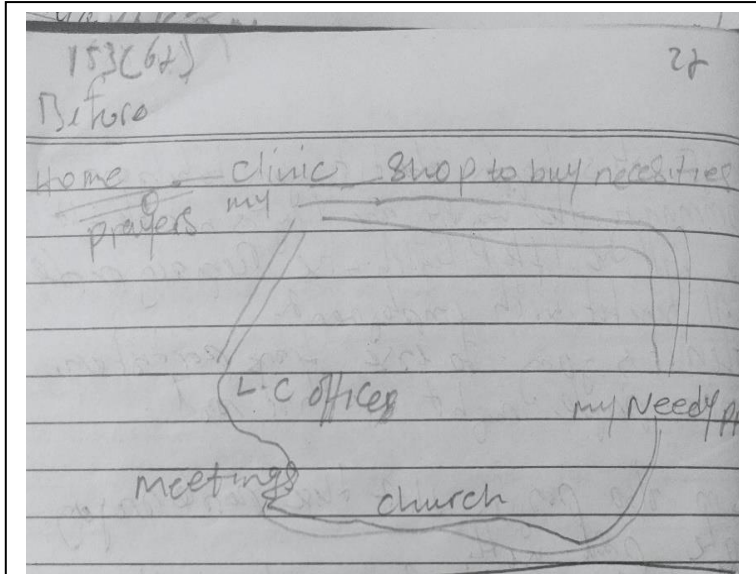 153(62) 22
Before
Home - Clinic - Shop to buy necesities
my
prayers
L.C offices
my Needy
meetings
church